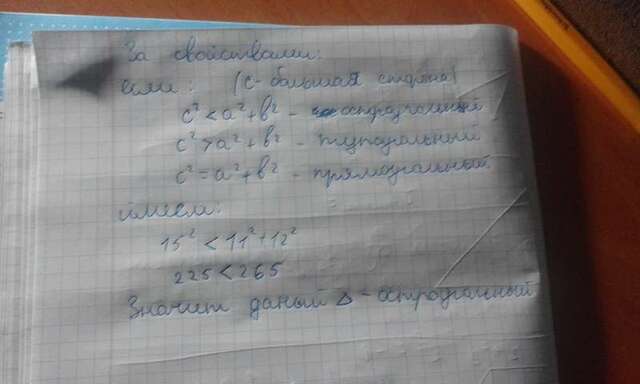 За свойствами:
если: (с - большая сторона)
c² < a² + b² - остроугольный
c² > a² + b² - тупоугольный
c² = a² + b² - прямоугольный
Имеем:
15² < 11² + 12²
225 < 265
Значит даный Δ - остроугольный